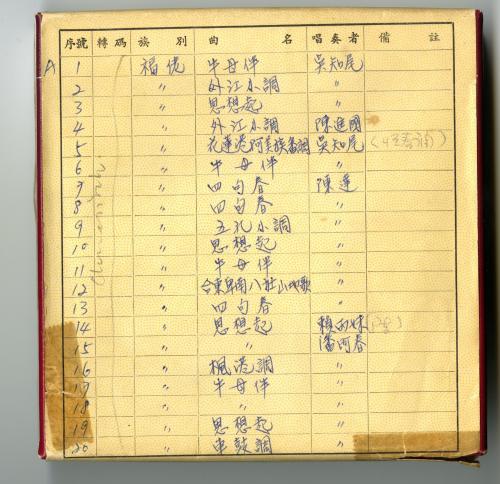 序號 轉碼 族別 曲名 唱奏者 備註
A 1 福佬 牛母伴 吳知尾
2 〃 外江小調 〃
3 〃 思想起 〃
4 〃 外江小調 陳進國
5 〃 花蓮港阿美族番調 吳知尾
6 〃 牛母伴 〃
7 〃 四句春 陳達
8 〃 四句春 〃
9 〃 五孔小調 〃
10 〃 思想起 〃
11 〃 牛母伴 〃
12 〃 台東卑南八社山地歌 〃
13 〃 四句春 〃
14 〃 思想起 賴四妹
15 〃 〃 潘阿春
16 〃 楓港調 〃
17 〃 牛母伴 〃
18 〃 〃 〃
19 〃 思想起 〃
20 〃 車鼓調 〃